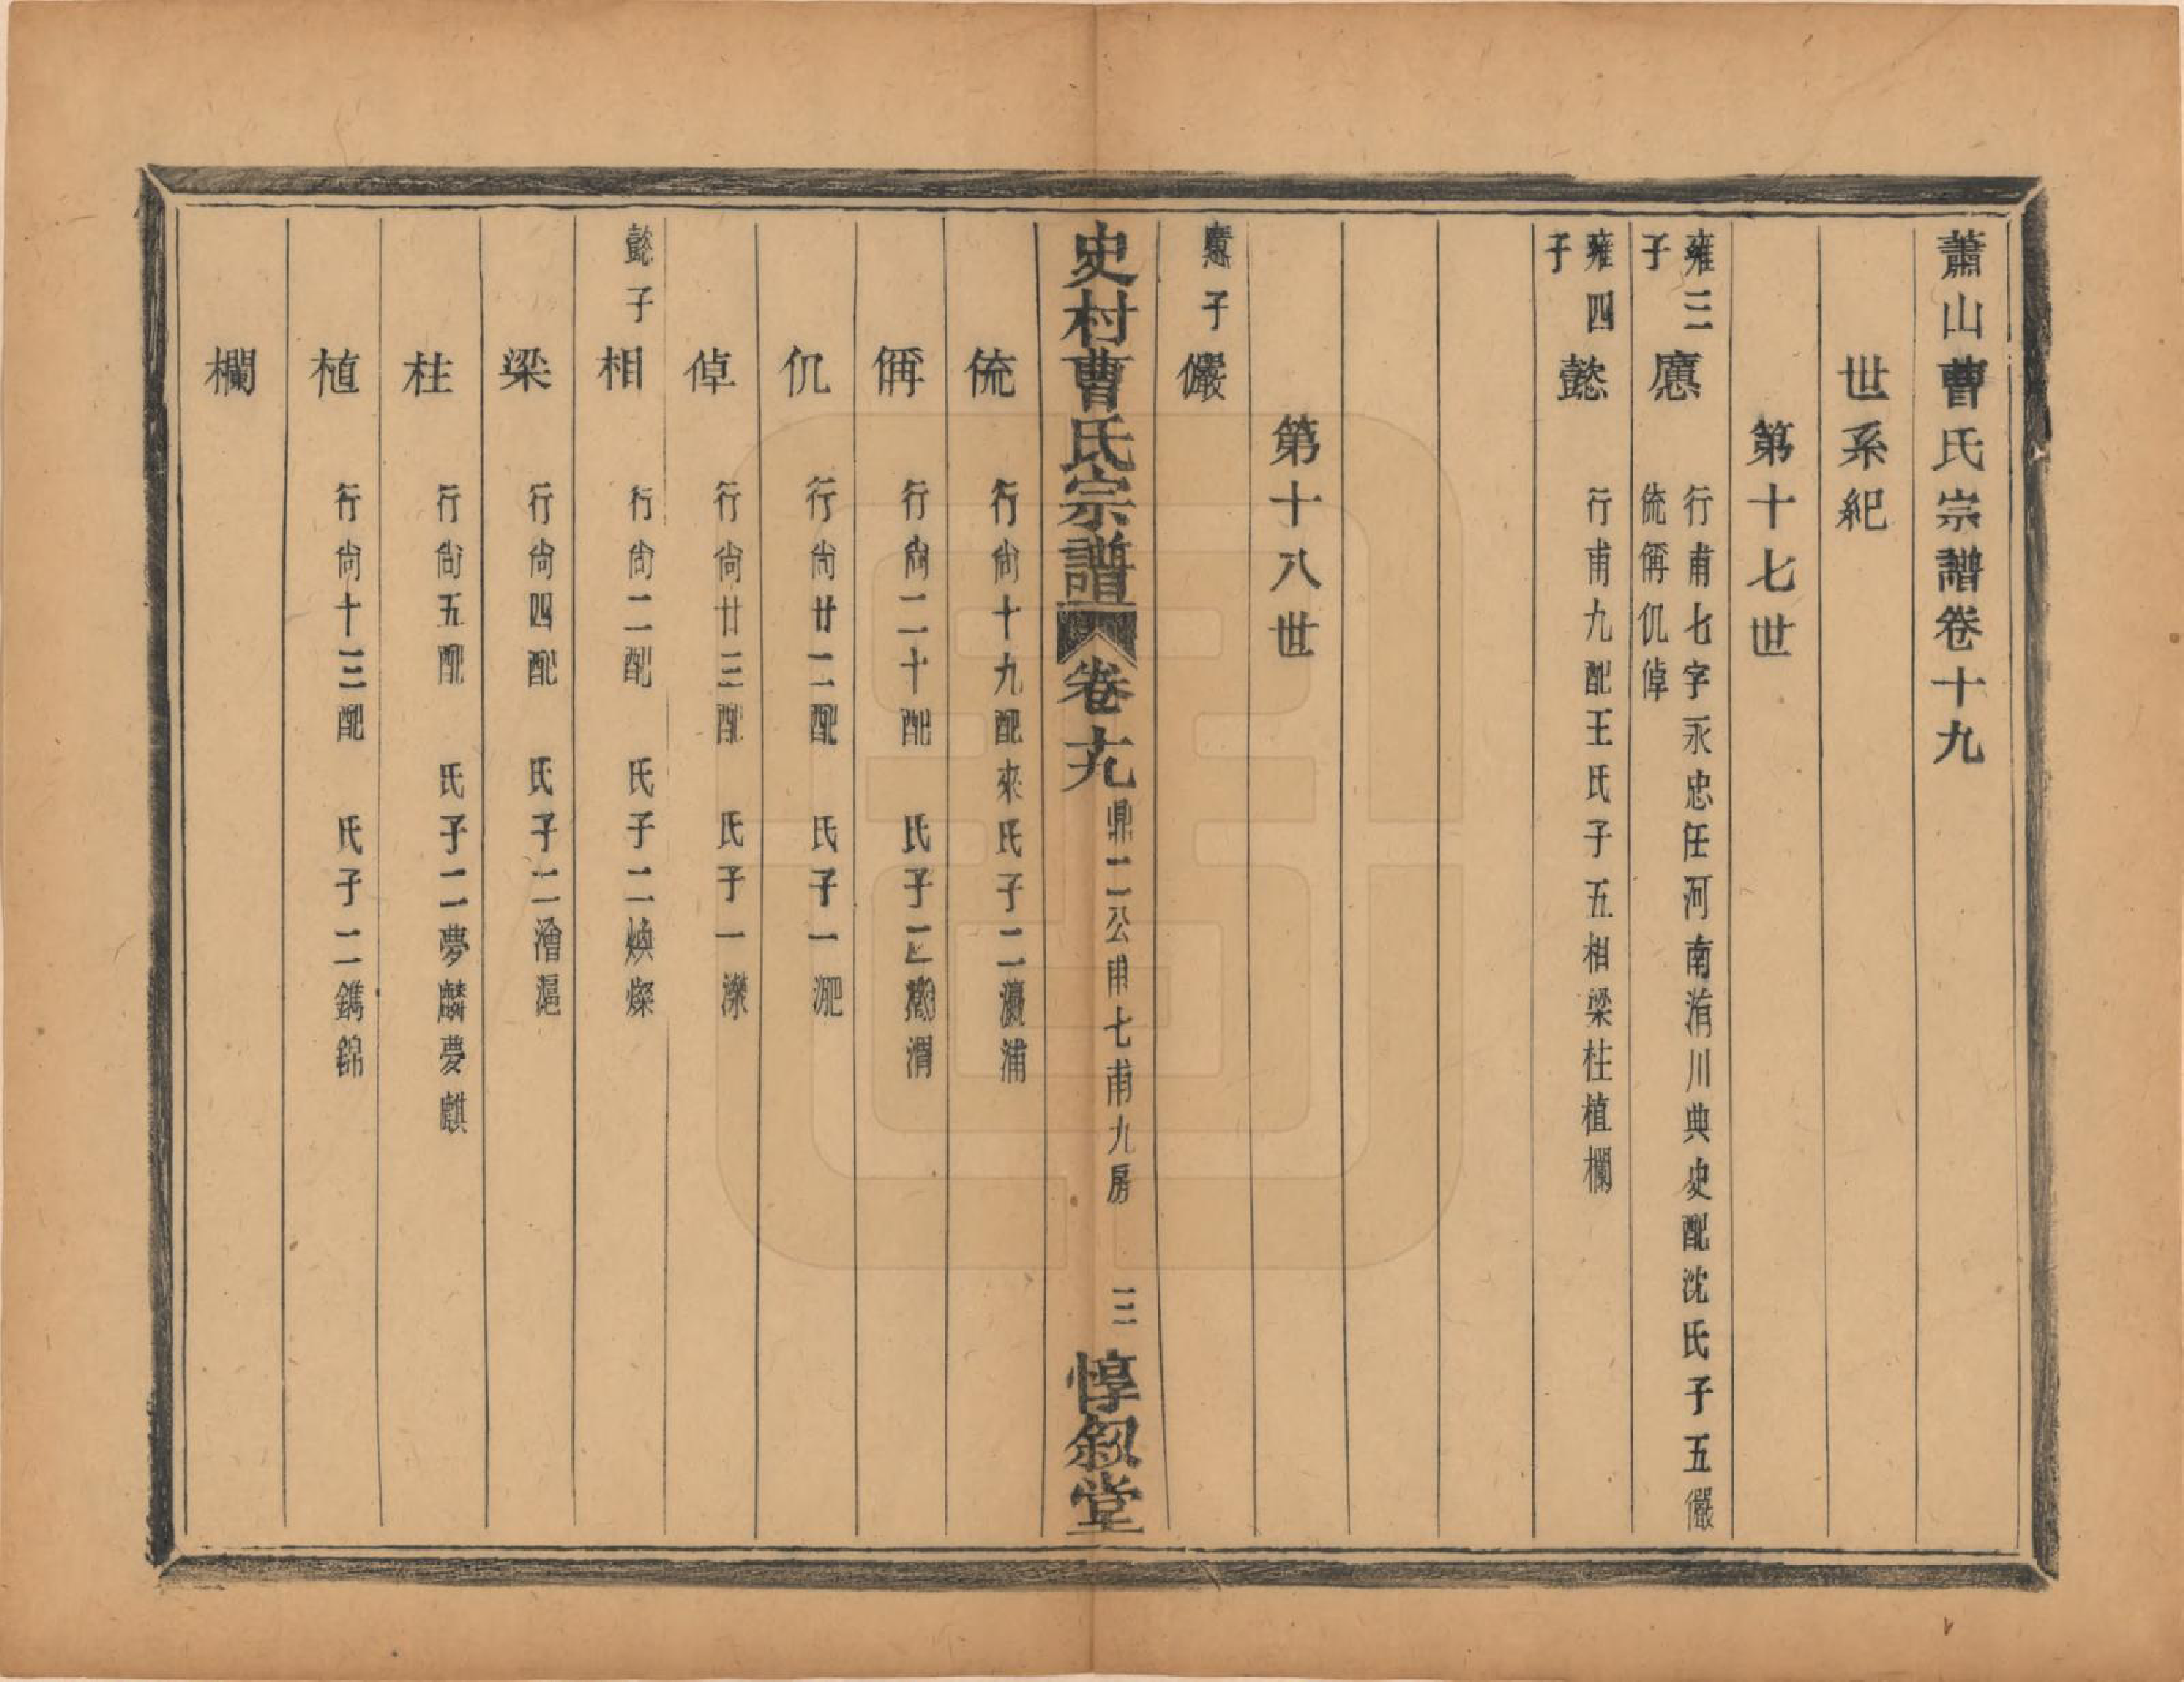 蕭山曹氏宗譜卷十九
世系紀
第十七世
雍三子
應
行甫七字永忠任河南洧川典史配沈氏子五儼
㑬偁仉倬
雍四子
懿
行甫九配王氏子五相梁柱植欄
第十八世
應子
儼
史村曹氏宗譜 卷十九 鼎二公甫七甫九房 三 惇叙堂
㑬
行尙十九配來氏子二瀛浦
偁
行尙二十配 氏子二澂渭
仉
行尙廿二配 氏子一淝
倬
行尙廿三配 氏子一濼
懿子
相
行尙二配 氏子二煥燦
梁
行尙四配 氏子二澮滬
柱
行尙五配 氏子二夢麟夢麒
植
行尙十三配 氏子二鐫錦
欄